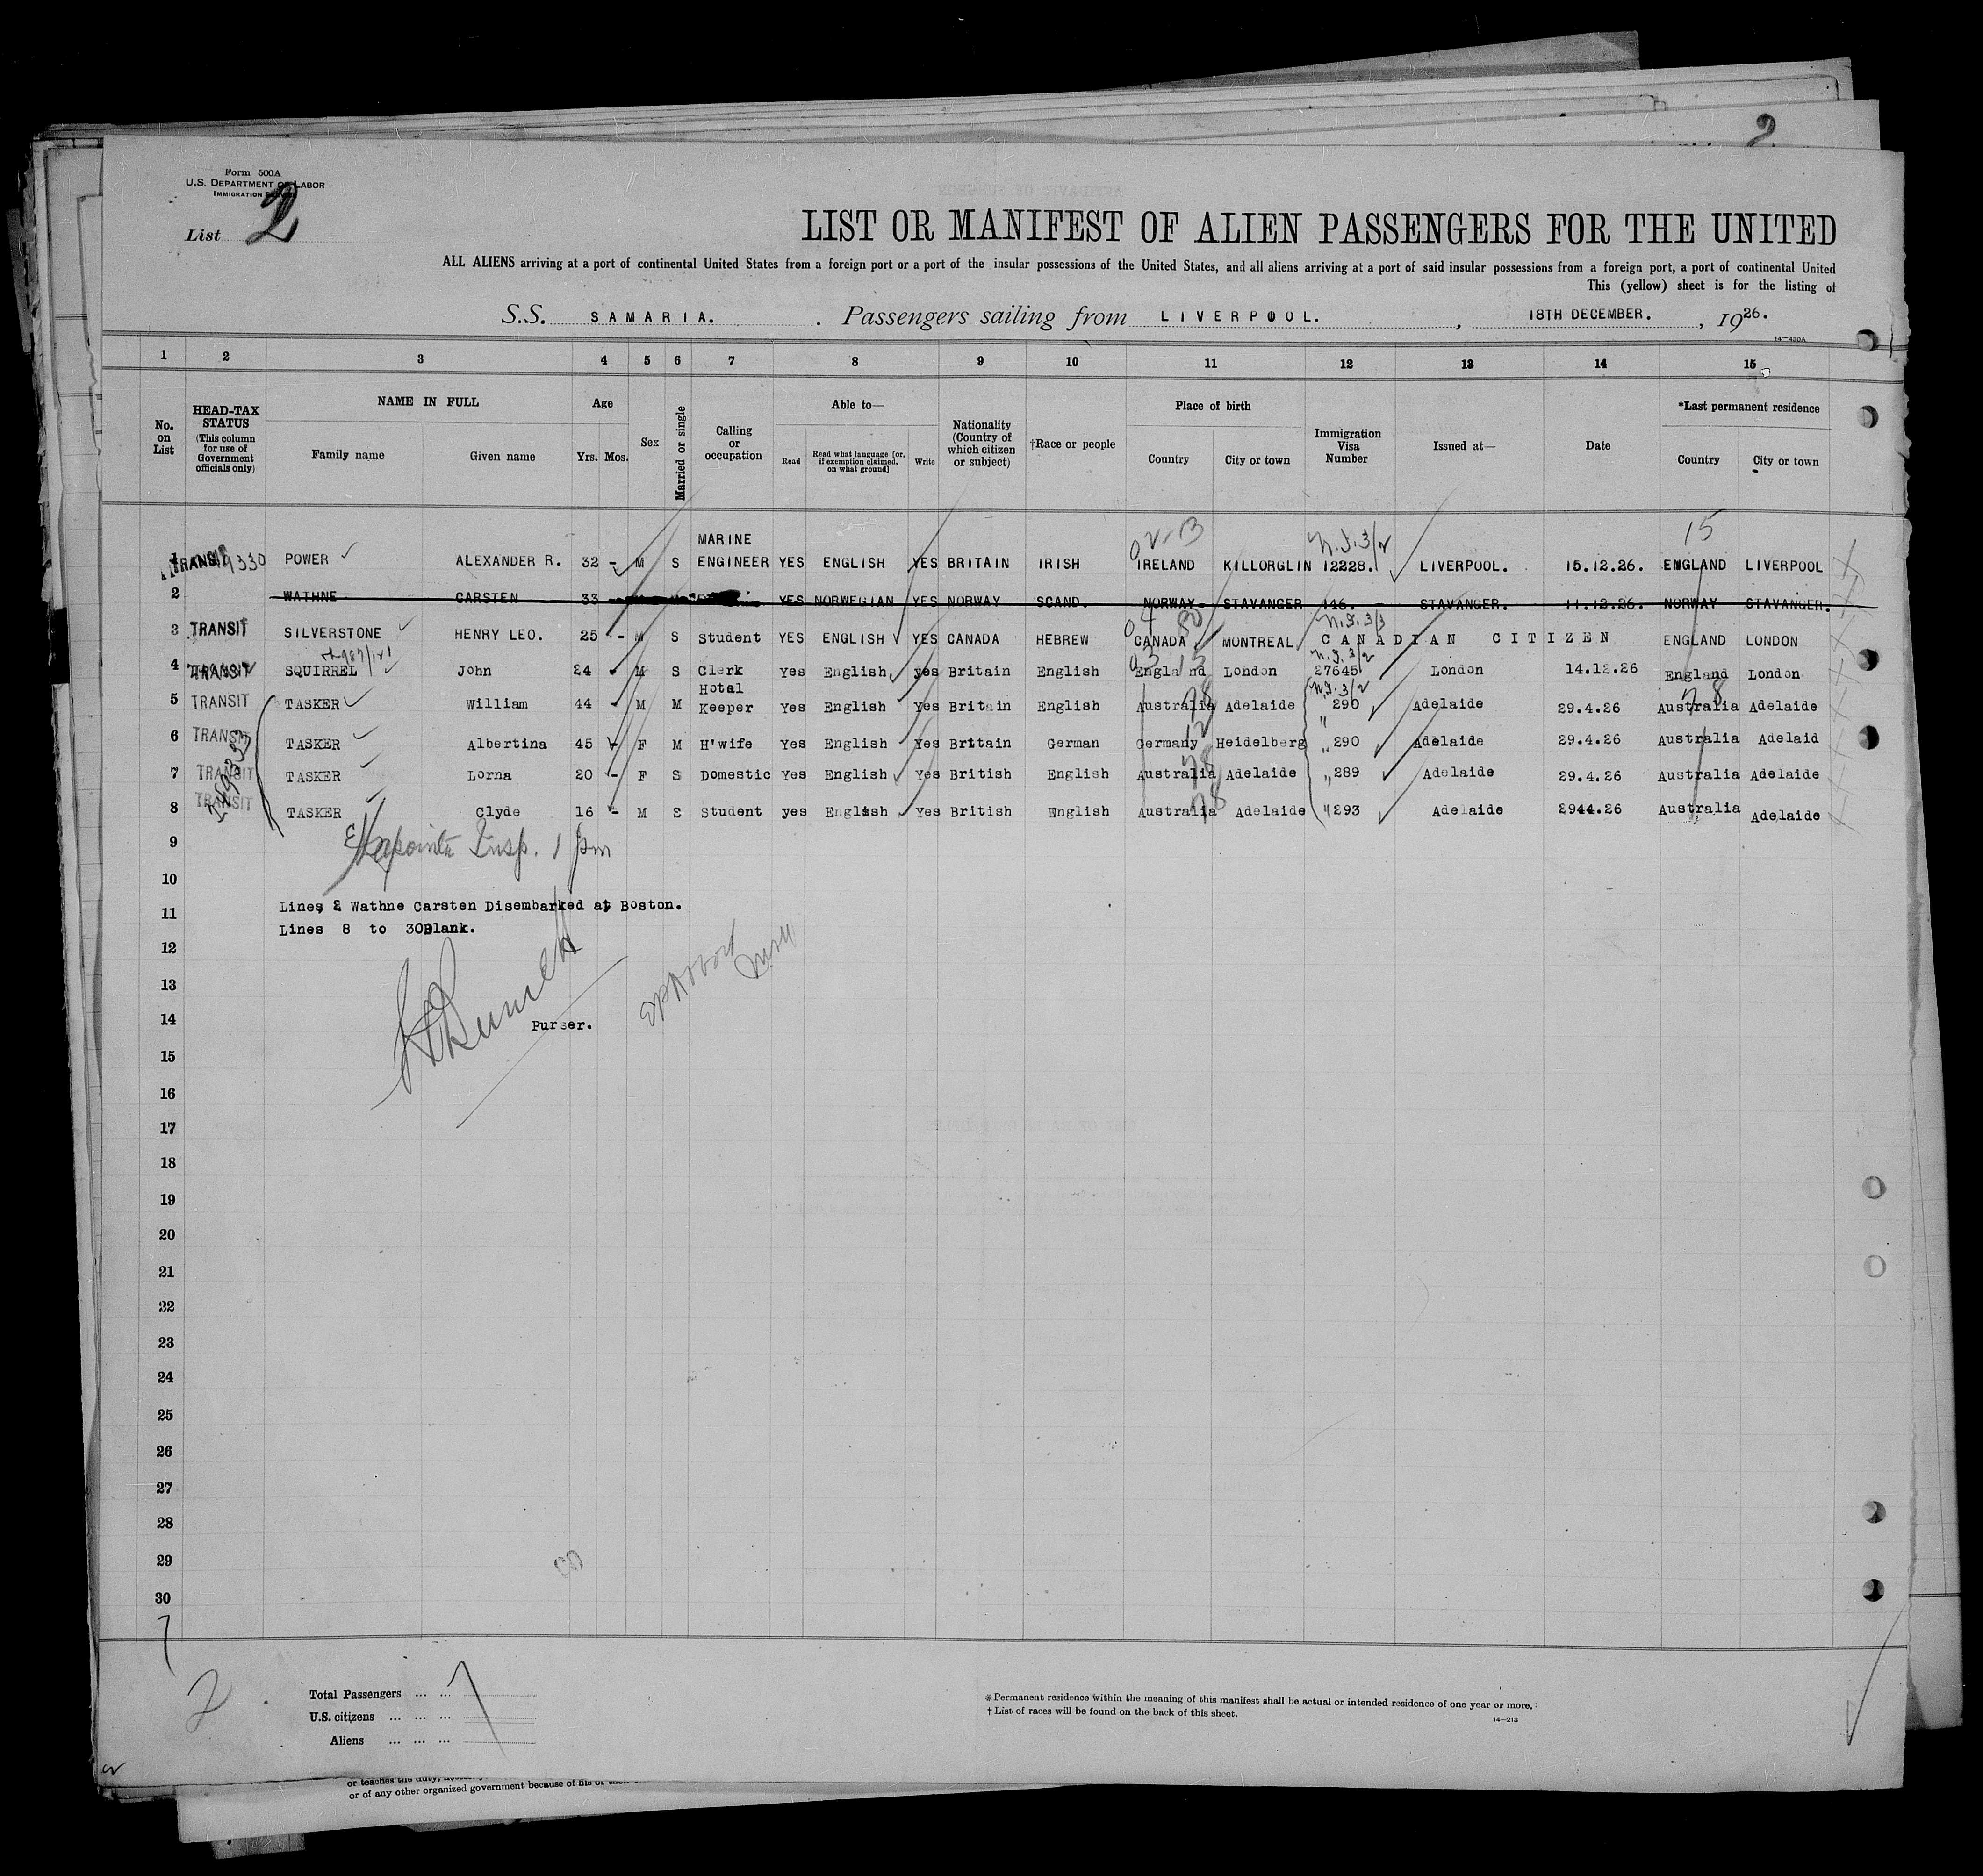 2
Form 500A
U.S. DEPARTMENT OF LABOR
IMMIGRATION
List 2
LIST OR MANIFEST OF ALIEN PASSENGERS FOR THE UNITED
ALL ALIENS arriving at a port of continental United States from a foreign port or a port of the insular possessions of the United States, and all aliens arriving at a port of said insular possessions from a foreign port, a port of continental United
This (yellow) sheet is for the listing of
S.S. SAMARIA. Passengers sailing from LIVERPOOL. , 18TH DECEMBER. , 1926.
14—430A
1 2 3 4 5 6 7 8 9 10 11 12 13 14 15
No. on List
HEAD-TAX STATUS (This column for use of Government officials only)
NAME IN FULL
Family name Given name
Age
Yrs. Mos.
Sex
Married or single
Calling or occupation
Able to—
Read
Read what language [or, if exemption claimed, on what ground]
Write
Nationality (Country of which citizen or subject)
†Race or people
Place of birth
Country City or town
Immigration Visa Number
Issued at—
Date
*Last permanent residence
Country City or town
02-13 N.I.3/2 15
1 TRANSIT 330 POWER ALEXANDER R. 32 - M S MARINE ENGINEER YES ENGLISH YES BRITAIN IRISH IRELAND KILLORGLIN 12228. LIVERPOOL. 15.12.26. ENGLAND LIVERPOOL
2 WATHNE CARSTEN 33 YES NORWEGIAN YES NORWAY SCAND. NORWAY STAVANGER 146. STAVANGER. 11.12.26. NORWAY STAVANGER.
04 80 N.I.3/3
3 TRANSIT SILVERSTONE HENRY LEO. 25 - M S Student YES ENGLISH YES CANADA HEBREW CANADA MONTREAL CANADIAN CITIZEN ENGLAND LONDON
03 15 N.I.3/2
4 TRANSIT SQUIRREL John 24 - M S Clerk Yes English yes Britain English England London 27645 London 14.12.26 England London
N.I.3/2
5 TRANSIT TASKER William 44 - M M Hotel Keeper Yes English Yes Britain English Australia 78 Adelaide 290 Adelaide 29.4.26 Australia 78 Adelaide
6 TRANSIT TASKER Albertina 45 - F M H'wife Yes English Yes Britain German Germany 12 Heidelberg " 290 Adelaide 29.4.26 Australia Adelaid
7 TRANSIT TASKER Lorna 20 - F S Domestic Yes English Yes British English Australia 78 Adelaide " 289 Adelaide 29.4.26 Australia Adelaide
8 TRANSIT TASKER Clyde 16 - M S Student yes English Yes British Wnglish Australia 78 Adelaide " 293 Adelaide 2944.26 Australia Adelaide
9
Insp. 1 pm
10
11 Lines 2 Wathne Carsten Disembarked at Boston.
Lines 8 to 30Blank.
12
13
14 Purser.
15
16
17
18
19
20
21
22
23
24
25
26
27
28
29
30
2
Total Passengers ... ... 7
U.S. citizens ... ... ...
Aliens ... ... ...
*Permanent residence within the meaning of this manifest shall be actual or intended residence of one year or more.
†List of races will be found on the back of this sheet.
14—213
or teaches the duty,
or of any other organized government because of his or